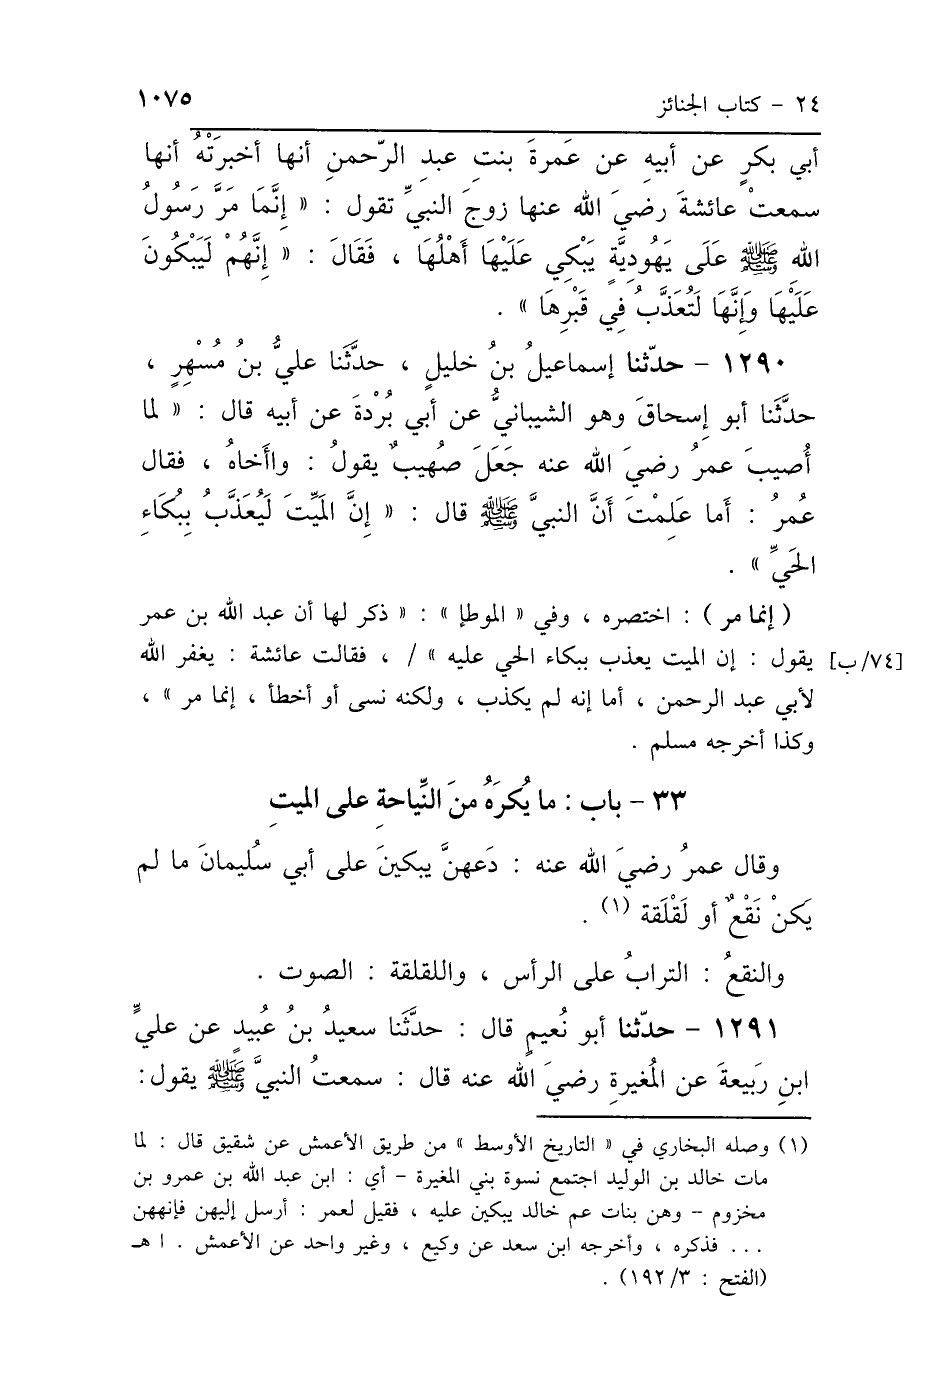 ٢٤ - كتاب الجنائز ١٠٧٥
أبي بكرٍ عن أبيهِ عن عَمرةَ بنتِ عبدِ الرّحمنِ أنها أخبرَتْهُ أنها
سمعتْ عائشةَ رضيَ الله عنها زوجَ النبيِّ تقول : « إِنَّمَا مَرَّ رَسُولُ
اللهِ ﷺ عَلَى يَهُودِيَّةٍ يَبْكِي عَلَيْهَا أَهْلُهَا ، فَقَالَ : « إِنَّهُمْ لَيَبْكُونَ
عَلَيْهَا وَإِنَّهَا لَتُعَذَّبُ فِي قَبْرِهَا » .
١٢٩٠ - حدّثنا إسماعيلُ بنُ خليلٍ ، حدَّثَنا عليُّ بنُ مُسْهِرٍ ،
حدَّثَنا أبو إِسحاقَ وهو الشيبانيُّ عن أبي بُرْدةَ عن أبيه قال : « لما
أُصيبَ عمرُ رضيَ الله عنه جَعَلَ صُهيبٌ يقولُ : واأَخاهُ ، فقال
عُمرُ : أَما عَلِمْتَ أَنَّ النبيَّ ﷺ قال : « إِنَّ المَيِّتَ لَيُعَذَّبُ بِبُكَاءِ
الحَيِّ » .
( إنما مر ) : اختصره ، وفي « الموطإ » : « ذكر لها أن عبد الله بن عمر
يقول : إن الميت يعذب ببكاء الحي عليه » / ، فقالت عائشة : يغفر الله [٧٤/ ب]
لأبي عبد الرحمن ، أما إنه لم يكذب ، ولكنه نسى أو أخطأ ، إنما مر » ،
وكذا أخرجه مسلم .
٣٣ - باب : ما يُكرَهُ منَ النِّياحةِ على الميتِ
وقال عمرُ رضيَ الله عنه : دَعهنَّ يبكينَ على أبي سُليمانَ ما لم
يَكنْ نَقْعٌ أو لَقْلَقة (١) .
والنقعُ : الترابُ على الرأس ، واللقلقة : الصوت .
١٢٩١ - حدّثنا أبو نُعيمٍ قال : حدَّثَنا سعيدُ بنُ عُبيدٍ عن عليِّ
ابنِ رَبيعةَ عن المُغيرةِ رضيَ الله عنه قال : سمعتُ النبيَّ ﷺ يقول:
(١) وصله البخاري في « التاريخ الأوسط » من طريق الأعمش عن شقيق قال : لما
مات خالد بن الوليد اجتمع نسوة بني المغيرة - أي : ابن عبد الله بن عمرو بن
مخزوم - وهن بنات عم خالد يبكين عليه ، فقيل لعمر : أرسل إليهن فإنههن
... فذكره ، وأخرجه ابن سعد عن وكيع ، وغير واحد عن الأعمش . ا هـ
(الفتح : ٣/ ١٩٢) .